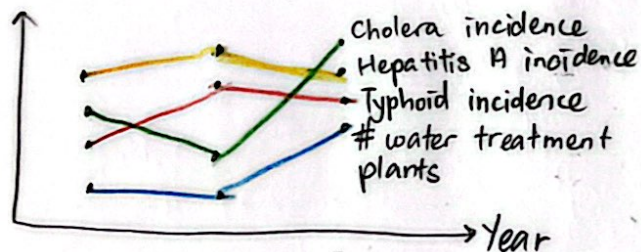 Cholera incidence
Hepatitis A incidence
Typhoid incidence
# water treatment
plants
Year